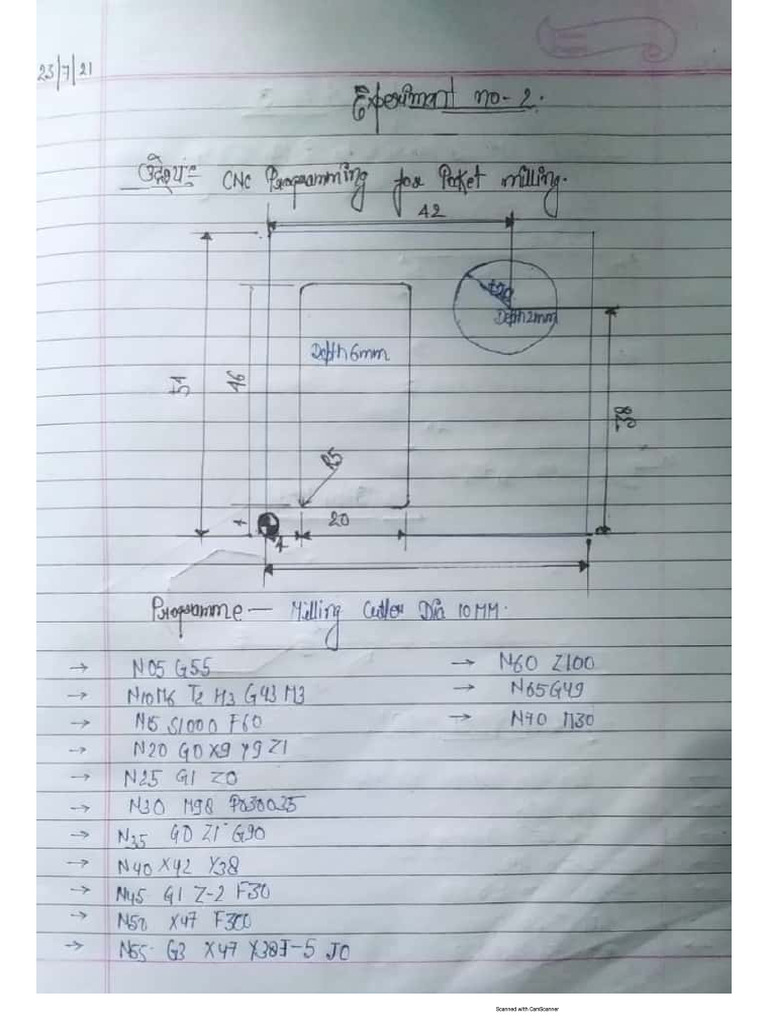 23/7/21
Experiment no-2.
उद्देश्य:- CNC Programming for Pocket milling.
42
Depth 2mm
Depth 6mm
51
46
38
R5
4
20
4
Programme — Milling Cutter Dia 10 MM.
→ N05 G55
→ N10M6 T2 H3 G43 M3
→ N15 S1000 F60
→ N20 G0 X9 Y9 Z1
→ N25 G1 Z0
→ N30 M98 P0030035
→ N35 G0 Z1 G90
→ N40 X42 Y38
→ N45 G1 Z-2 F30
→ N50 X47 F300
→ N55 G3 X47 Y38 I-5 J0
→ N60 Z100
→ N65 G49
→ N70 M30
Scanned with CamScanner